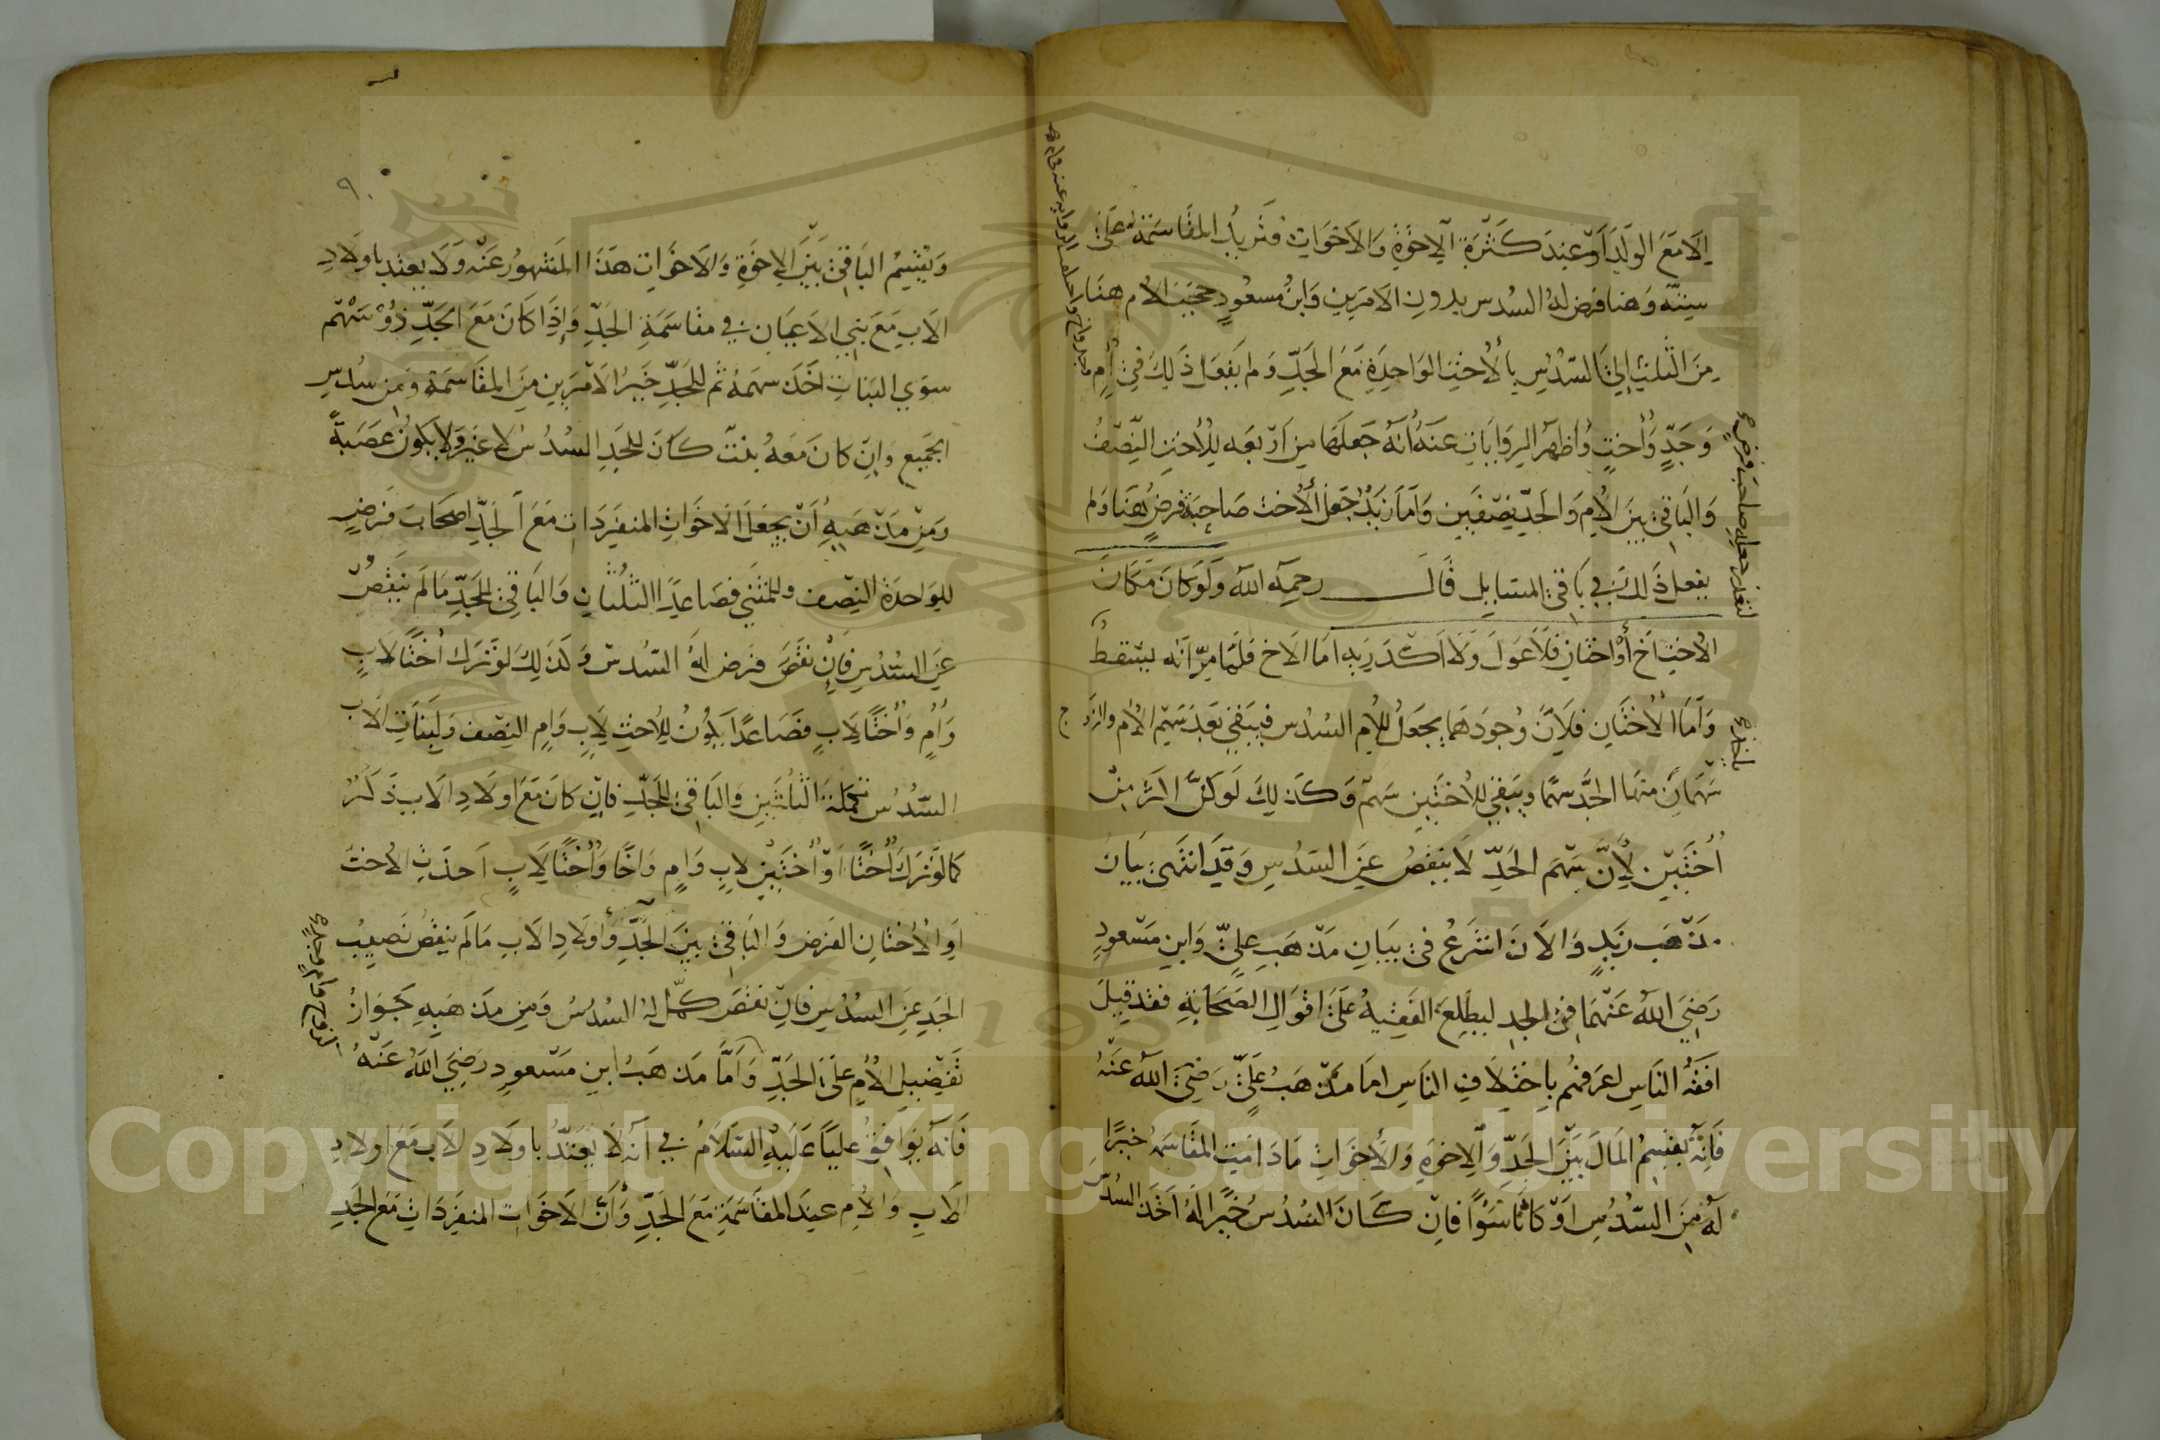 الا مع الولد او عند كثرة الاخوة والاخوات فتزيد المقاسمة على
ستة وهنا فرض له السدس بدون الامرين وابن مسعود حجب الام هنا
من الثلث الى السدس بالاخت الواحدة مع الجد ولم يفعل ذلك في ام
وجد واخت واظهر الروايات عنه انه جعلها من اربعه للاخت النصف
والباقي بين الام والجد نصفين واما زيد جعل الاخت صاحبة فرض هنا ولم
يفعل ذلك في باقي المسايل قال رحمه الله ولو كان مكان
الاخت اخ او اختان فلا عول ولا اكدريه اما الاخ فلما مر انه يسقط
واما الاختان فلان وجودهما يجعل للام السدس فيبقى بعد سهم الام والزوج
سهمان منهما الجد سهما ويبقى للاختين سهم وكذلك لو كن اكثر من
اختين لان سهم الجد لا ينقص عن السدس وقد انتهى بيان
مذهب زيد والان انشرع في بيان مذهب علي وابن مسعود
رضي الله عنهما في الجد ليطلع الفقيه على اقوال الصحابة فقد قيل
افقه الناس اعرفهم باختلاف الناس اما مذهب علي رضي الله عنه
فانه يقسم المال بين الجد والاخوة والاخوات ما دامت المقاسمه خيرا
له من السدس او كانا سوا فان كان السدس خيرا له اخذ السدس
لتعذر جعله صاحب فرض
ويقسم الباقي بين الاخوة والاخوات هذا المشهور عنه ولا يعتد باولاد
الاب مع بني الاعيان في مقاسمة الجد واذا كان مع الجد ذو سهم
سوى البنات اخذ سهمه ثم للجد خير الامرين من المقاسمة ومن سدس
الجميع وان كان معه بنت كان للجد السدس لا غير ولا يكون عصبة
ومن مذهبه ان يجعل الاخوات المنفردات مع الجد اصحاب فرض
للواحدة النصف وللمثنى فصاعدا الثلثان والباقي للجد ما لم ينقص
عن السدس فان نقص فرض له السدس ولذلك لو ترك اختا لاب
وام واختا لاب فصاعدا يكون للاخت لاب وام النصف ولبنات الاب
السدس تكملة الثلثين والباقي للجد فان كان مع اولاد الاب ذكر
كما لو ترك اختا او اختين لاب وام واخا واختا لاب اخذت الاخت
او الاختان الفرض والباقي بين الجد واولاد الاب ما لم ينقص نصيب
الجد عن السدس فان نقص كمل له السدس ومن مذهبه جواز
تفضيل الام على الجد واما مذهب ابن مسعود رضي الله عنه
فانه يوافق عليا عليه السلام في انه لا يعتد باولاد الاب مع اولاد
الاب والام عند المقاسمة مع الجد وان الاخوات المنفردات مع الجد
Copyright © King Saud University
1957